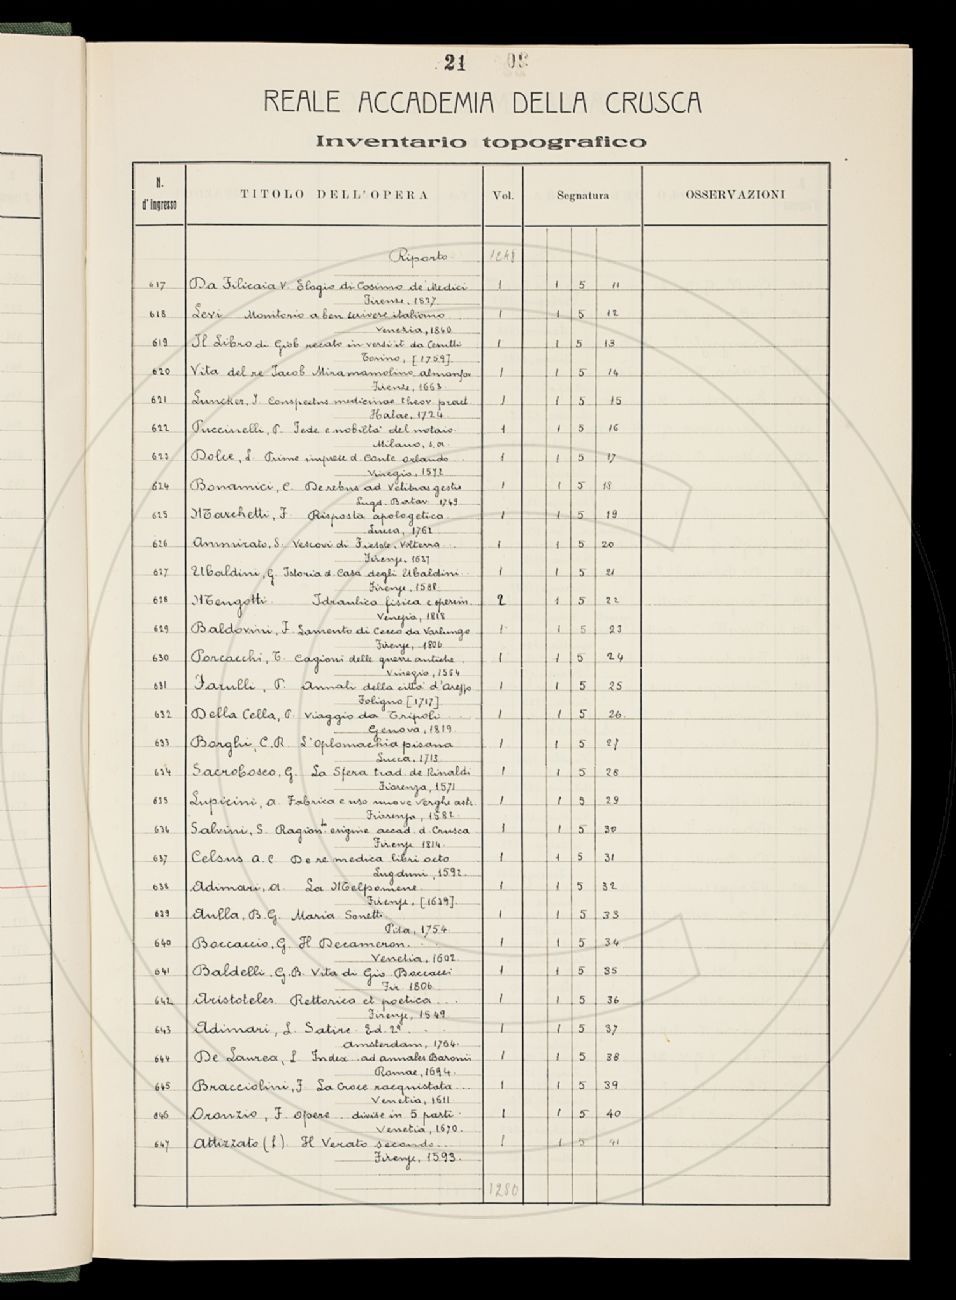 21
REALE ACCADEMIA DELLA CRUSCA
Inventario topografico
N. d'Ingresso TITOLO DELL'OPERA Vol. Segnatura OSSERVAZIONI
Riporto 1248
617 Da Filicaia V. Elogio di Cosimo de' Medici 1 1 5 11
Firenze, 1837
618 Levi Monitorio a ben scrivere italiano 1 1 5 12
Venezia, 1840
619 Il Libro di Giob recato in versi it da Cerutti 1 1 5 13
Torino, [1759]
620 Vita del re Jacob Miramamolino almanfor 1 1 5 14
Firenze, 1663
621 Juncker, J. Conspectus medicinae theor pract 1 1 5 15
Halae, 1724
622 Puccinelli, P. Fede e nobiltà del notaio 1 1 5 16
Milano, s.a.
623 Dolce, L. Prime imprese d. Conte Orlando 1 1 5 17
Vinegia, 1572
624 Bonamici, C. De rebus ad Velitras gestis 1 1 5 18
Lugd. Batav. 1749
625 Marchetti, F. Risposta apologetica 1 1 5 19
Lucca, 1762
626 Ammirato, S. Vescovi di Fiesole, Volterra ... 1 1 5 20
Firenze, 1637
627 Ubaldini, G. Istoria d. Casa degli Ubaldini 1 1 5 21
Firenze, 1588
628 Mengotti Idraulica fisica e sperim. 2 1 5 22
Venezia, 1818
629 Baldovini, F. Lamento di Cecco da Varlungo 1 1 5 23
Firenze, 1806
630 Porcacchi, T. Cagioni delle guerre antiche 1 1 5 24
Vinegia, 1564
631 Farulli, P. Annali della città d'Arezzo 1 1 5 25
Foligno [1717]
632 Della Cella, P. Viaggio da Tripoli ... 1 1 5 26.
Genova, 1819
633 Borghi, C.R. L'Oplomachia pisana 1 1 5 27
Lucca, 1713
634 Sacrobosco, G. La Sfera trad. de Rinaldi 1 1 5 28
Fiorenza, 1571
635 Lupicini, A. Fabrica e uso nuove verghe astr. 1 1 5 29
Fiorenza, 1582
636 Salvini, S. Ragionto origine accad. d. Crusca 1 1 5 30
Firenze 1814
637 Celsus A.C. De re medica libri octo 1 1 5 31
Lugduni, 1592.
638 Adimari, A. La Melpomene 1 1 5 32
Firenze, [1639]
639 Aulla, B.G. Maria Sonetti 1 1 5 33
Pisa, 1754
640 Boccaccio, G. Il Decameron. 1 1 5 34
Venetia, 1602
641 Baldelli, G.B. Vita di Gio. Boccacci 1 1 5 35
Fir. 1806
642 Aristoteles. Rettorica et poetica ... 1 1 5 36
Firenze, 1549
643 Adimari, L. Satire. Ed. 2ª 1 1 5 37
Amsterdam, 1764
644 De Laurea, L. Index .. ad annales Baronii 1 1 5 38
Romae, 1694
645 Bracciolini, F. La Croce racquistata ... 1 1 5 39
Venetia, 1611
646 Oronzio, F. Opere .. divise in 5 parti 1 1 5 40
Venetia, 1670.
647 Attizzato (l') Il Verato secondo ... 1 1 5 41
Firenze, 1593.
1280